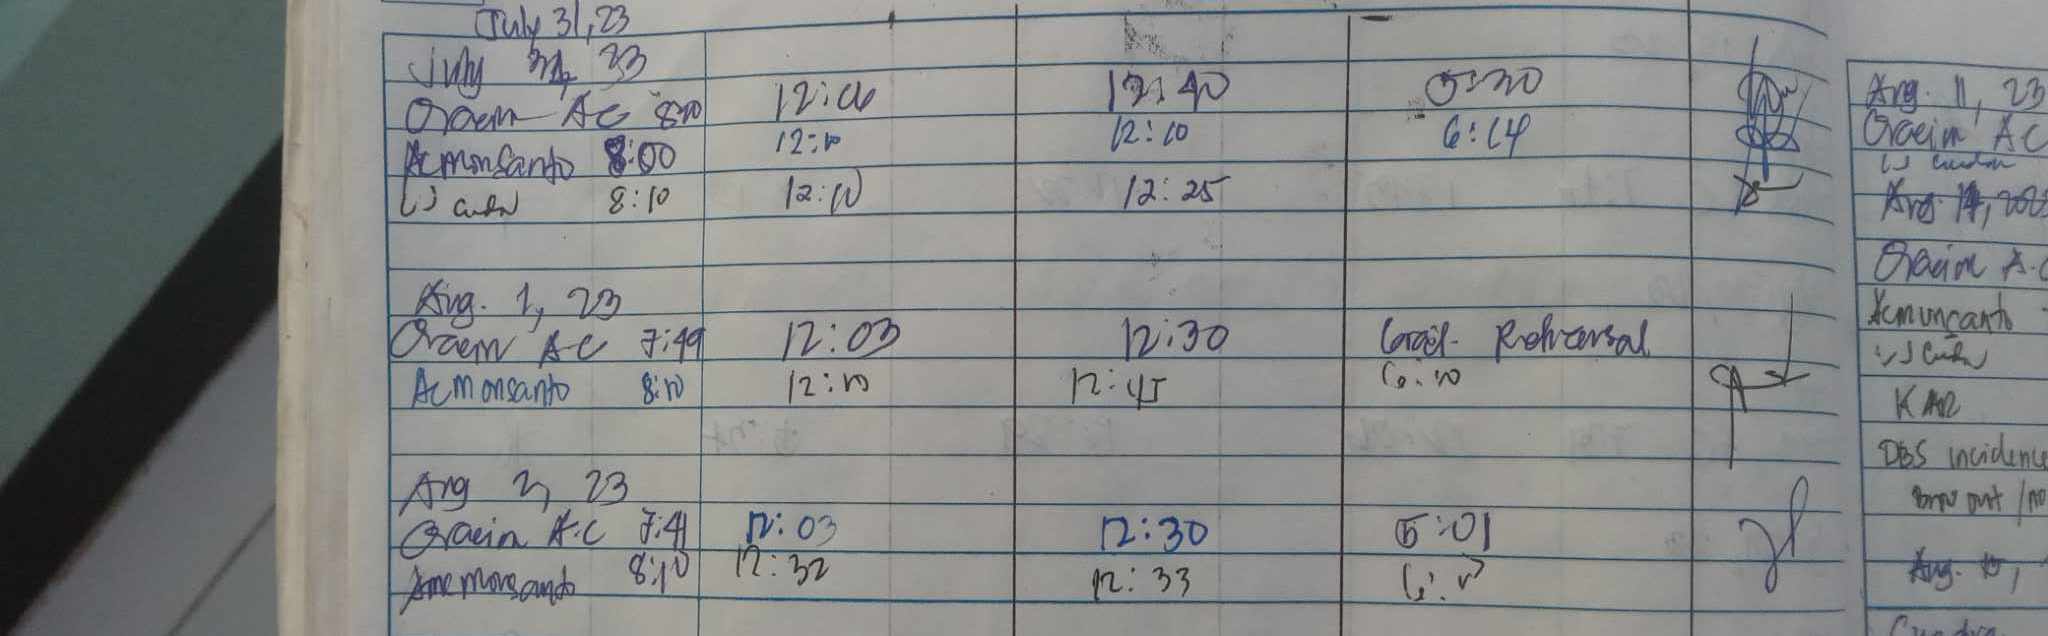 July 31, 23
July 31, 23
Oracion A C 8:00 12:06 12:40 5:30
Acmonsanto 8:00 12:10 12:10 6:14
8:10 12:10 12:25
Aug. 1, 23
Oracion A-C 7:49 12:03 12:30 Grad. Rehearsal
Acmonsanto 8:10 12:10 12:45 6:10
Aug 2, 23
Oracion A.C 7:41 12:03 12:30 5:01
Monsanto 8:10 12:32 12:33
Aug. 11, 23
Oracion A C
Aug. 14, 202
Oracion A.C
Acmonsanto
DBS incidence
Brown out /no
Aug.